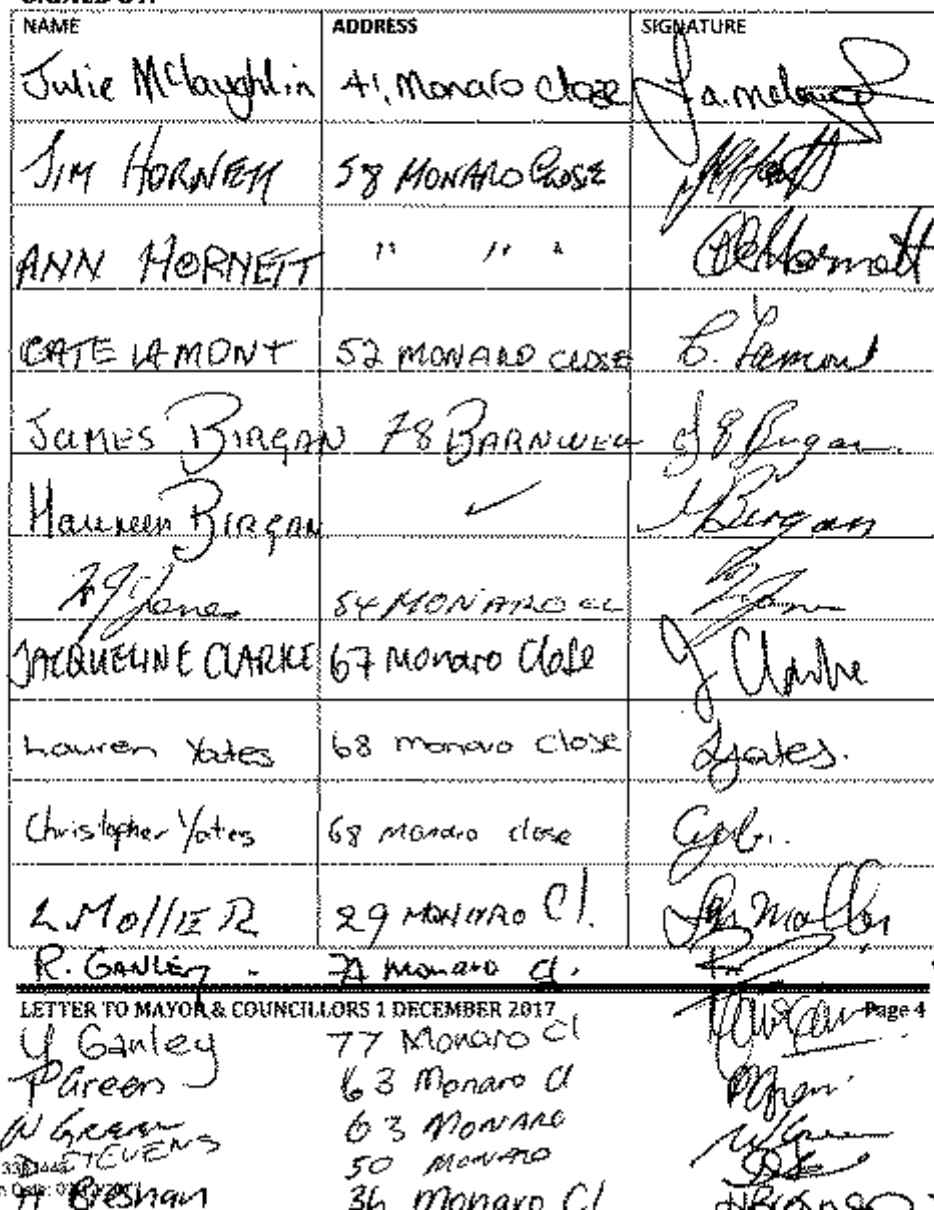 NAME ADDRESS SIGNATURE
Julie McLaughlin 41, Monaro close
JIM HORNETT 58 MONARO CLOSE
ANN HORNETT " " "
CATE LAMONT 52 MONARO CLOSE C. Lamont
JAMES BIRGAN 78 BARNWELL J E Birgan
Maureen BIRGAN ✓ M Birgan
Jones 54 MONARO CL
JACQUELINE CLARKE 67 Monaro Close J Clarke
Lauren Yates 68 monaro close LYates.
Christopher Yates 68 monaro close
L MOllER 29 MONARO Cl.
R. GANLEY - Monaro Cl.
LETTER TO MAYOR & COUNCILLORS 1 DECEMBER 2017 Page 4
Y Ganley 77 Monaro Cl
P Green 63 Monaro Cl PGreen
W Green 63 MONARO
D STEVENS 50 MONARO
H Bresnan 36 Monaro Cl